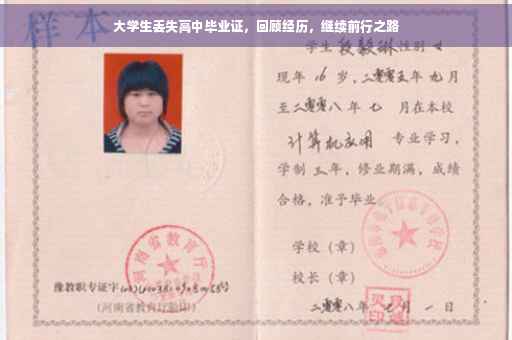 大学生丢失高中毕业证，回顾经历，继续前行之路
样本
学生 段毅琳 性别 女
现年 16 岁，二零零五年 九月
至二零零八年 七 月在本校
计算机应用 专业学习，
学制 三年，修业期满，成绩
合格，准予毕业
学校（章）
校长（章）
二零零八年 月 一 日
河南省教育厅
豫教职专证字
（河南省教育厅验印）